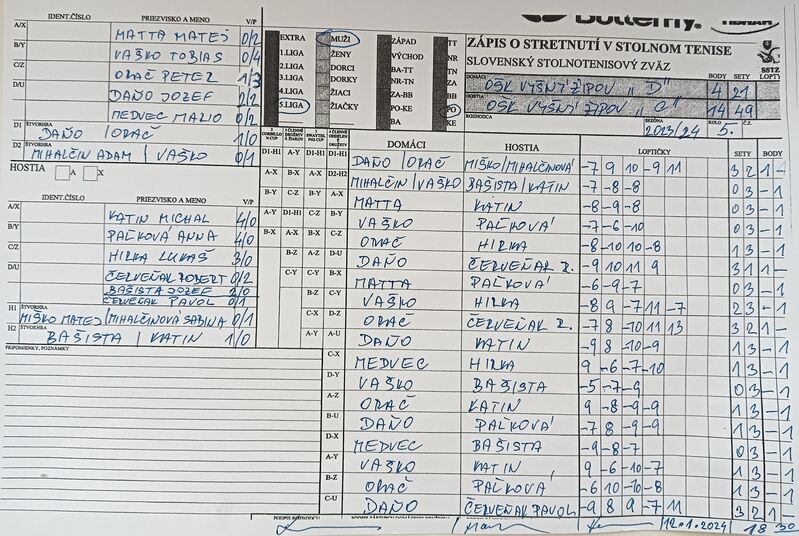 Butterfly
IDENT.ČÍSLO PRIEZVISKO A MENO V/P
A/X MATTA MATEJ 0/2
B/Y VAŠKO TOBIAS 0/4
C/Z ORAČ PETER 1/3
D/U DAŇO JOZEF 2/2
MEDVEC MARIO 0/2
D1 ŠTVORHRA DAŇO / ORAČ 1/0
D2 MIHALČIN ADAM / VAŠKO 0/1
HOSTIA A X
IDENT.ČÍSLO PRIEZVISKO A MENO V/P
A/X KATIN MICHAL 4/0
B/Y PAĽKOVÁ ANNA 4/0
C/Z HIRKA LUKÁŠ 3/0
D/U ČERVEŇAK ROBERT 0/2
BAŠISTA JOZEF 2/0
ČERVEŇAK PAVOL 0/1
H1 ŠTVORHRA MIŠKO MATEJ / MIHALČINOVÁ SABINA 0/1
H2 ŠTVORHRA BAŠISTA / KATIN 1/0
PRIPOMIENKY, POZNÁMKY
EXTRA MUŽI ZÁPAD TT
1.LIGA ŽENY VÝCHOD NR
2.LIGA DORCI BA-TT TN
3.LIGA DORKY NR-TN ZA
4.LIGA ŽIACI ZA-BB BB
5.LIGA ŽIAČKY PO-KE PO
BA KE
ZÁPIS O STRETNUTÍ V STOLNOM TENISE
SLOVENSKÝ STOLNOTENISOVÝ ZVÄZ
SSTZ
DOMÁCI BODY SETY LOPTY
OŠK VYŠNÝ ŽIPOV "D" 4 21
HOSTIA
OŠK VYŠNÝ ŽIPOV "C" 14 49
ROZHODCA SEZÓNA 2023/24 KOLO 5.
DOMÁCI HOSTIA LOPTIČKY SETY BODY
D1-H1 A-Y B-Y D1-H1 DAŇO / ORAČ MIŠKO/MIHALČINOVÁ -7 9 10 -9 11 3 2 1 -
A-X B-X A-X D2-H2 MIHALČIN / VAŠKO BAŠISTA / KATIN -7 -8 -8 0 3 - 1
B-Y C-Z A-X MATTA KATIN -8 -9 -8 0 3 - 1
A-Y D1-H1 C-Z B-Y VAŠKO PAĽKOVÁ -7 -6 -10 0 3 - 1
B-X A-X B-X C-Z ORAČ HIRKA -8 -10 10 -8 1 3 - 1
DAŇO ČERVEŇAK R. -9 10 11 9 3 1 1 -
MATTA PAĽKOVÁ -6 -9 -7 0 3 - 1
VAŠKO HIRKA -8 9 -7 11 -7 2 3 - 1
ORAČ ČERVEŇAK R. -7 8 -10 11 13 3 2 1 -
DAŇO KATIN -9 8 -10 -9 1 3 - 1
C-X MEDVEC HIRKA 9 -6 -7 -10 1 3 - 1
D-Y VAŠKO BAŠISTA -5 -7 -9 0 3 - 1
A-Z ORAČ KATIN 9 -8 -9 -9 1 3 - 1
B-U DAŇO PAĽKOVÁ -7 8 -9 -9 1 3 - 1
D-X MEDVEC BAŠISTA -9 -8 -7 0 3 - 1
A-Y VAŠKO KATIN 9 -6 -10 -7 1 3 - 1
B-Z ORAČ PAĽKOVÁ -6 10 -10 -8 1 3 - 1
C-U DAŇO ČERVEŇAK PAVOL -9 8 9 -7 11 3 2 1 -
12.01.2024 18 30